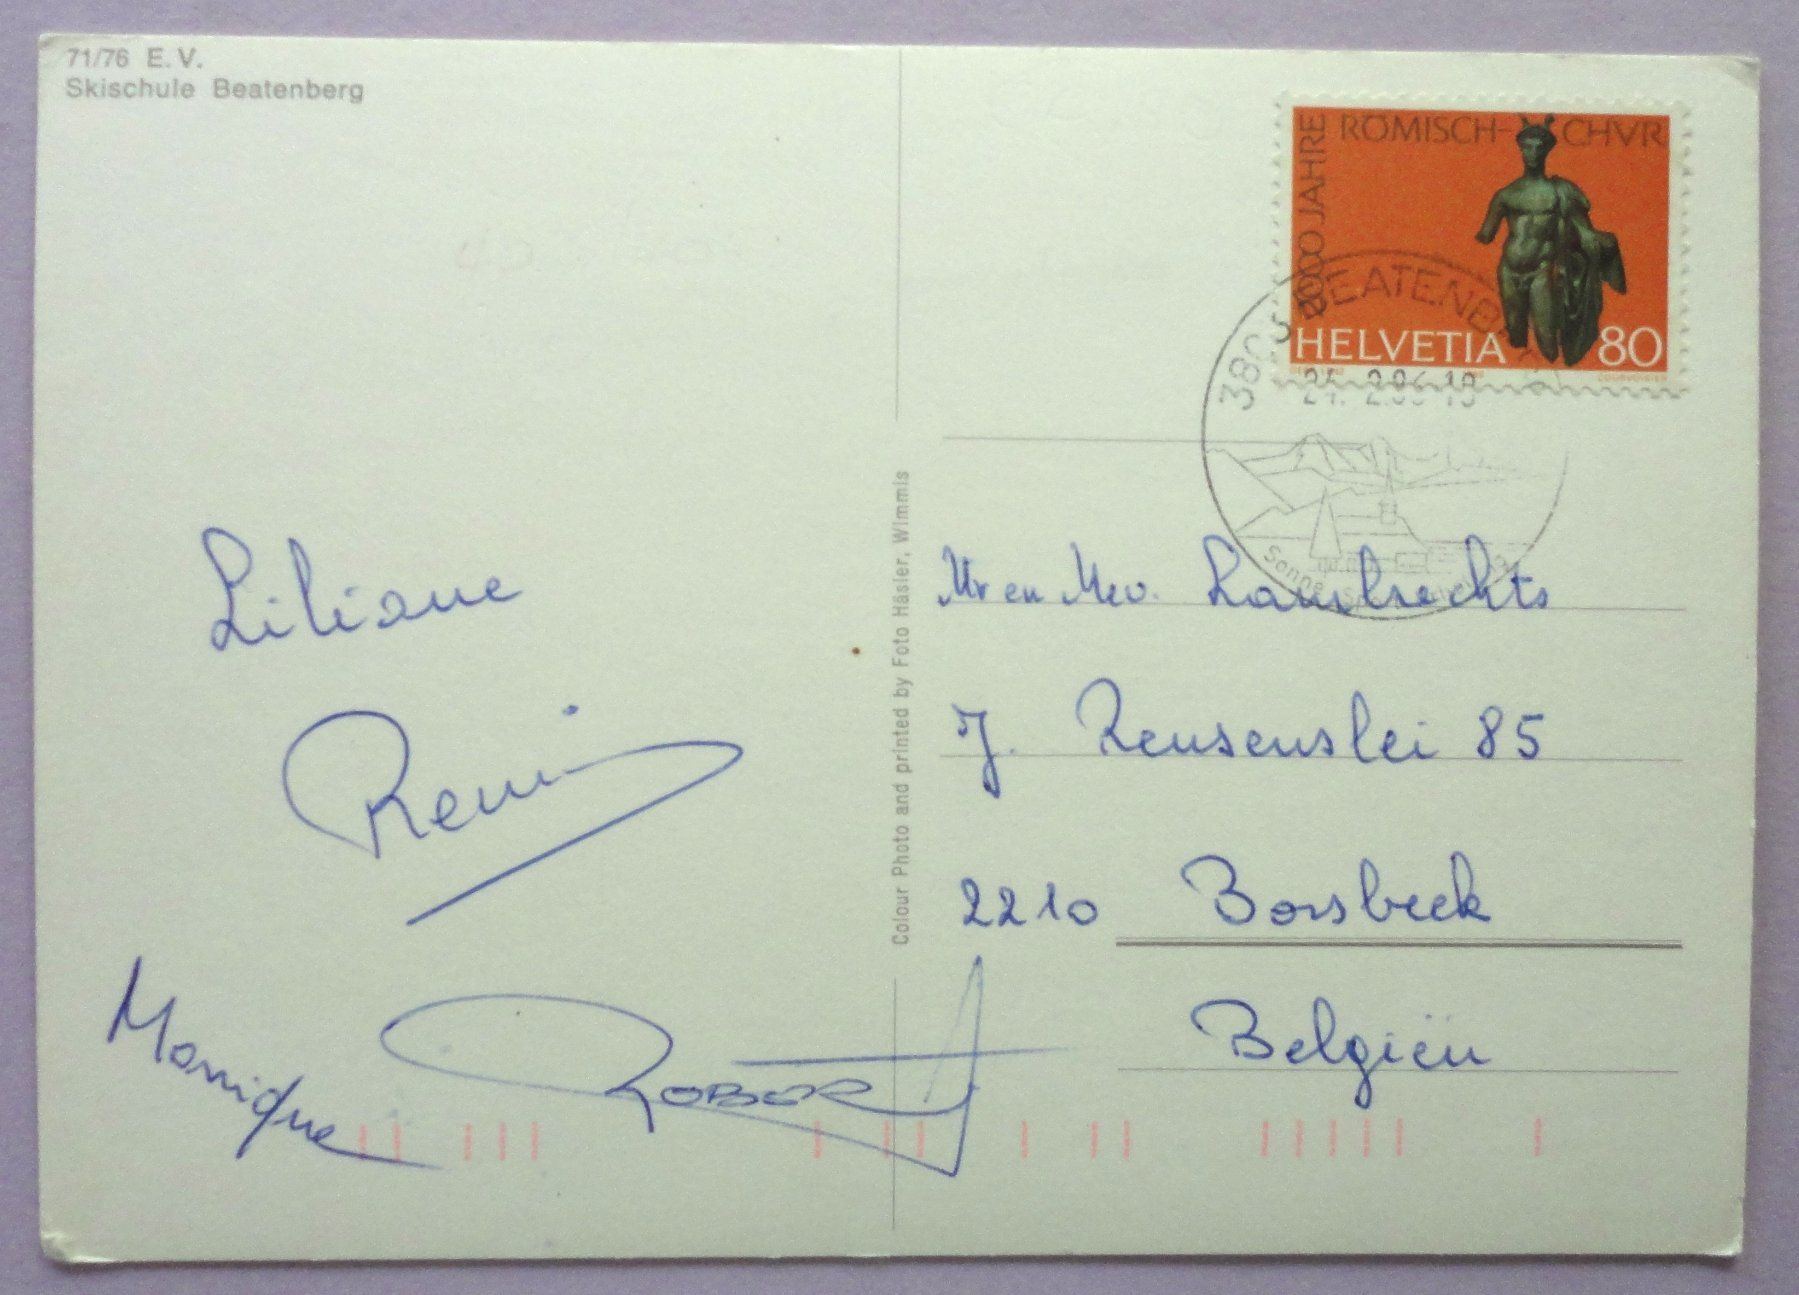 71/76 E. V.
Skischule Beatenberg
2000 JAHRE
RÖMISCH-CHVR
HELVETIA 80
COURVOISIER
BEATENB
24. 2.86-19
Sonne
Colour Photo and printed by Foto Häsler, Wimmis
Liliane
Remi
Monique
ROBERT
Mr en Mev. Lambrechts
J. Reusenslei 85
2210 Borsbeek
Belgieïn